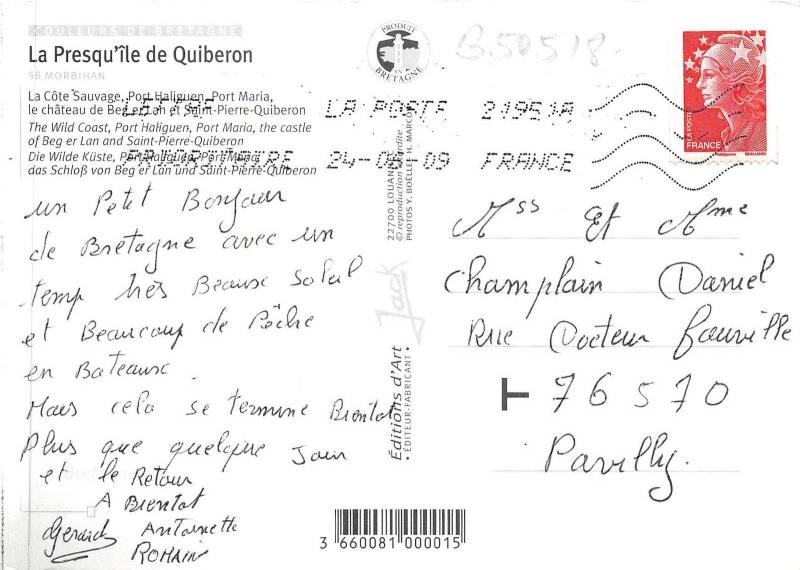 COULEURS DE BRETAGNE
La Presqu'île de Quiberon
56 MORBIHAN
La Côte Sauvage, Port Haliguen, Port Maria,
le château de Beg er Lan et Saint-Pierre-Quiberon
The Wild Coast, Port Haliguen, Port Maria, the castle
of Beg er Lan and Saint-Pierre-Quiberon
Die Wilde Küste, Port Haliguen, Port Maria,
das Schloß von Beg er Lan und Saint-Pierre-Quiberon
PRODUIT
EN
BRETAGNE
B50518
LETTRE LA POSTE 21951A
PRIORITAIRE 24-09-09 FRANCE
LA POSTE
FRANCE
BEAUJARD
un Petit Bonjour
de Bretagne avec un
temp très Beause Soleil
et Beaucoup de Pêche
en Bateause
Mais cela se termine Bientot
Plus que quelque Jour
et le Retour
A Bientot
Gerard Antoinette
ROMAIN
22700 LOUANNEC
© reproduction interdite
PHOTOS Y. BOËLLE - H. MARCOU
Jack
Éditions d'Art
• ÉDITEUR-FABRICANT •
Mss Et Mme
Champlain Daniel
Rue Docteur Fauville
T 76570
Pavilly
3 660081 000015